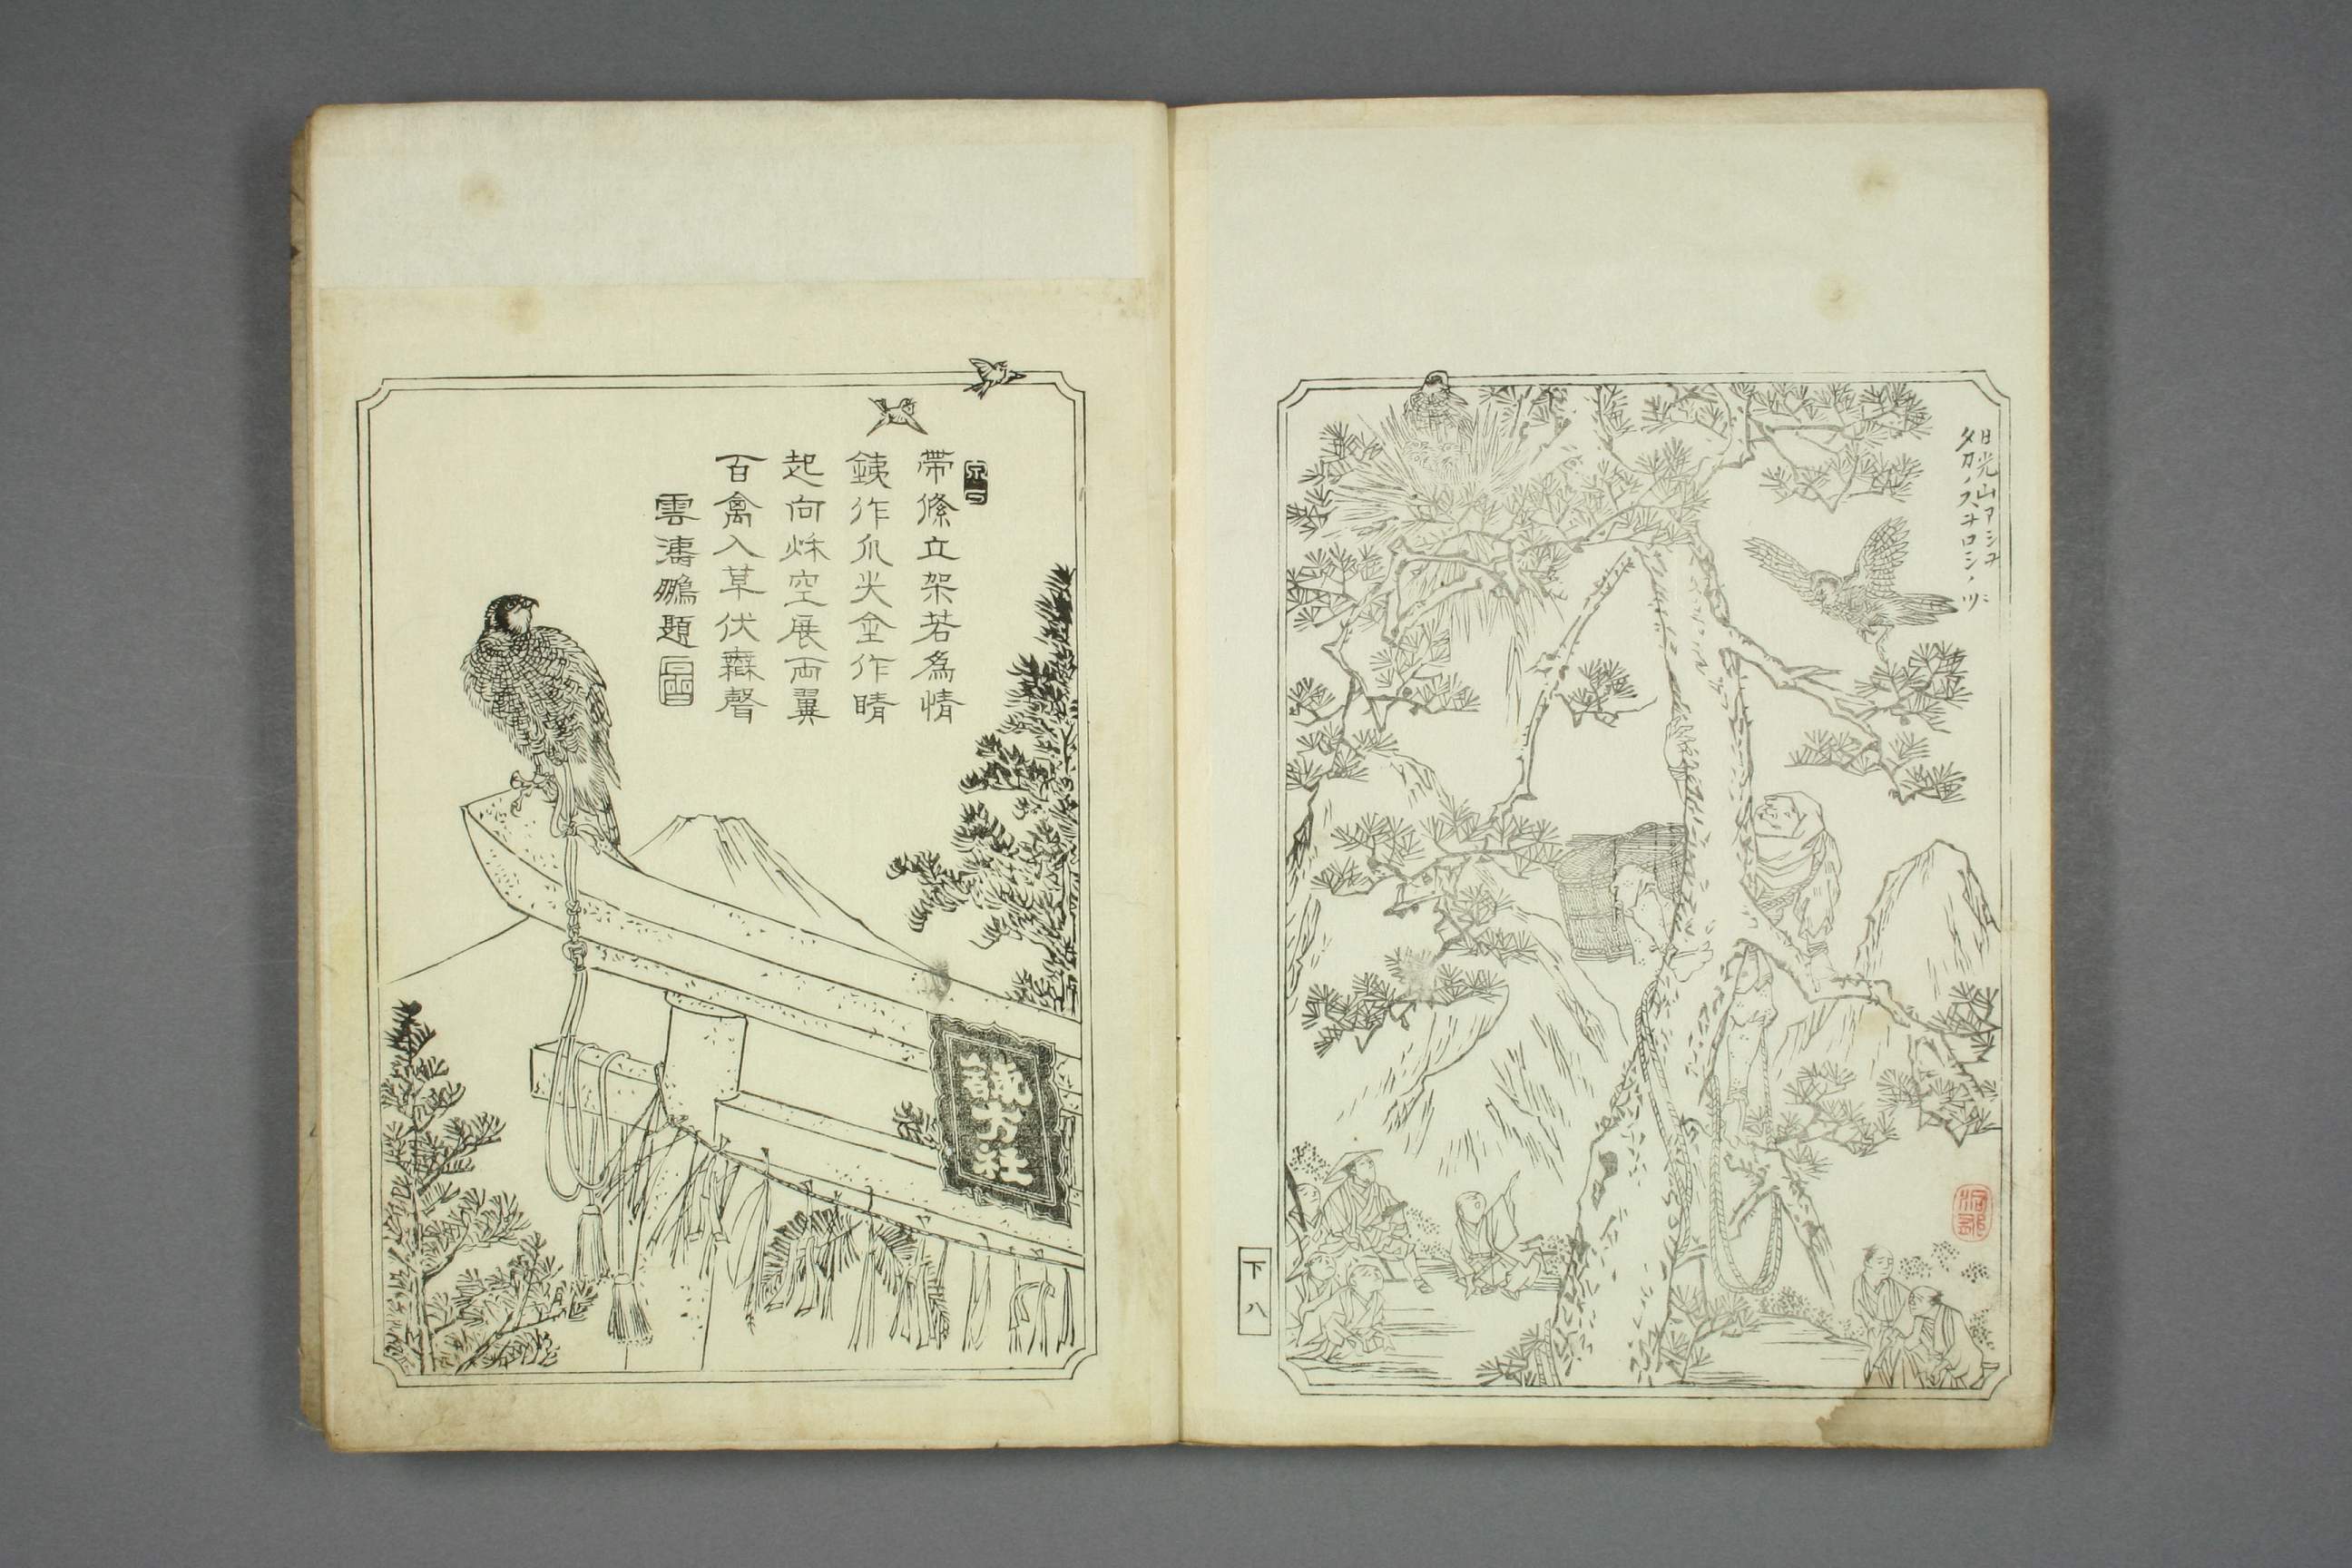 日光山アシユ
タカノスオロシノツ
下八
帶絛立架若為情
銕作爪尖金作睛
起向秌空展両翼
百禽入草伏無聲
雲濤鵬題
諏方社